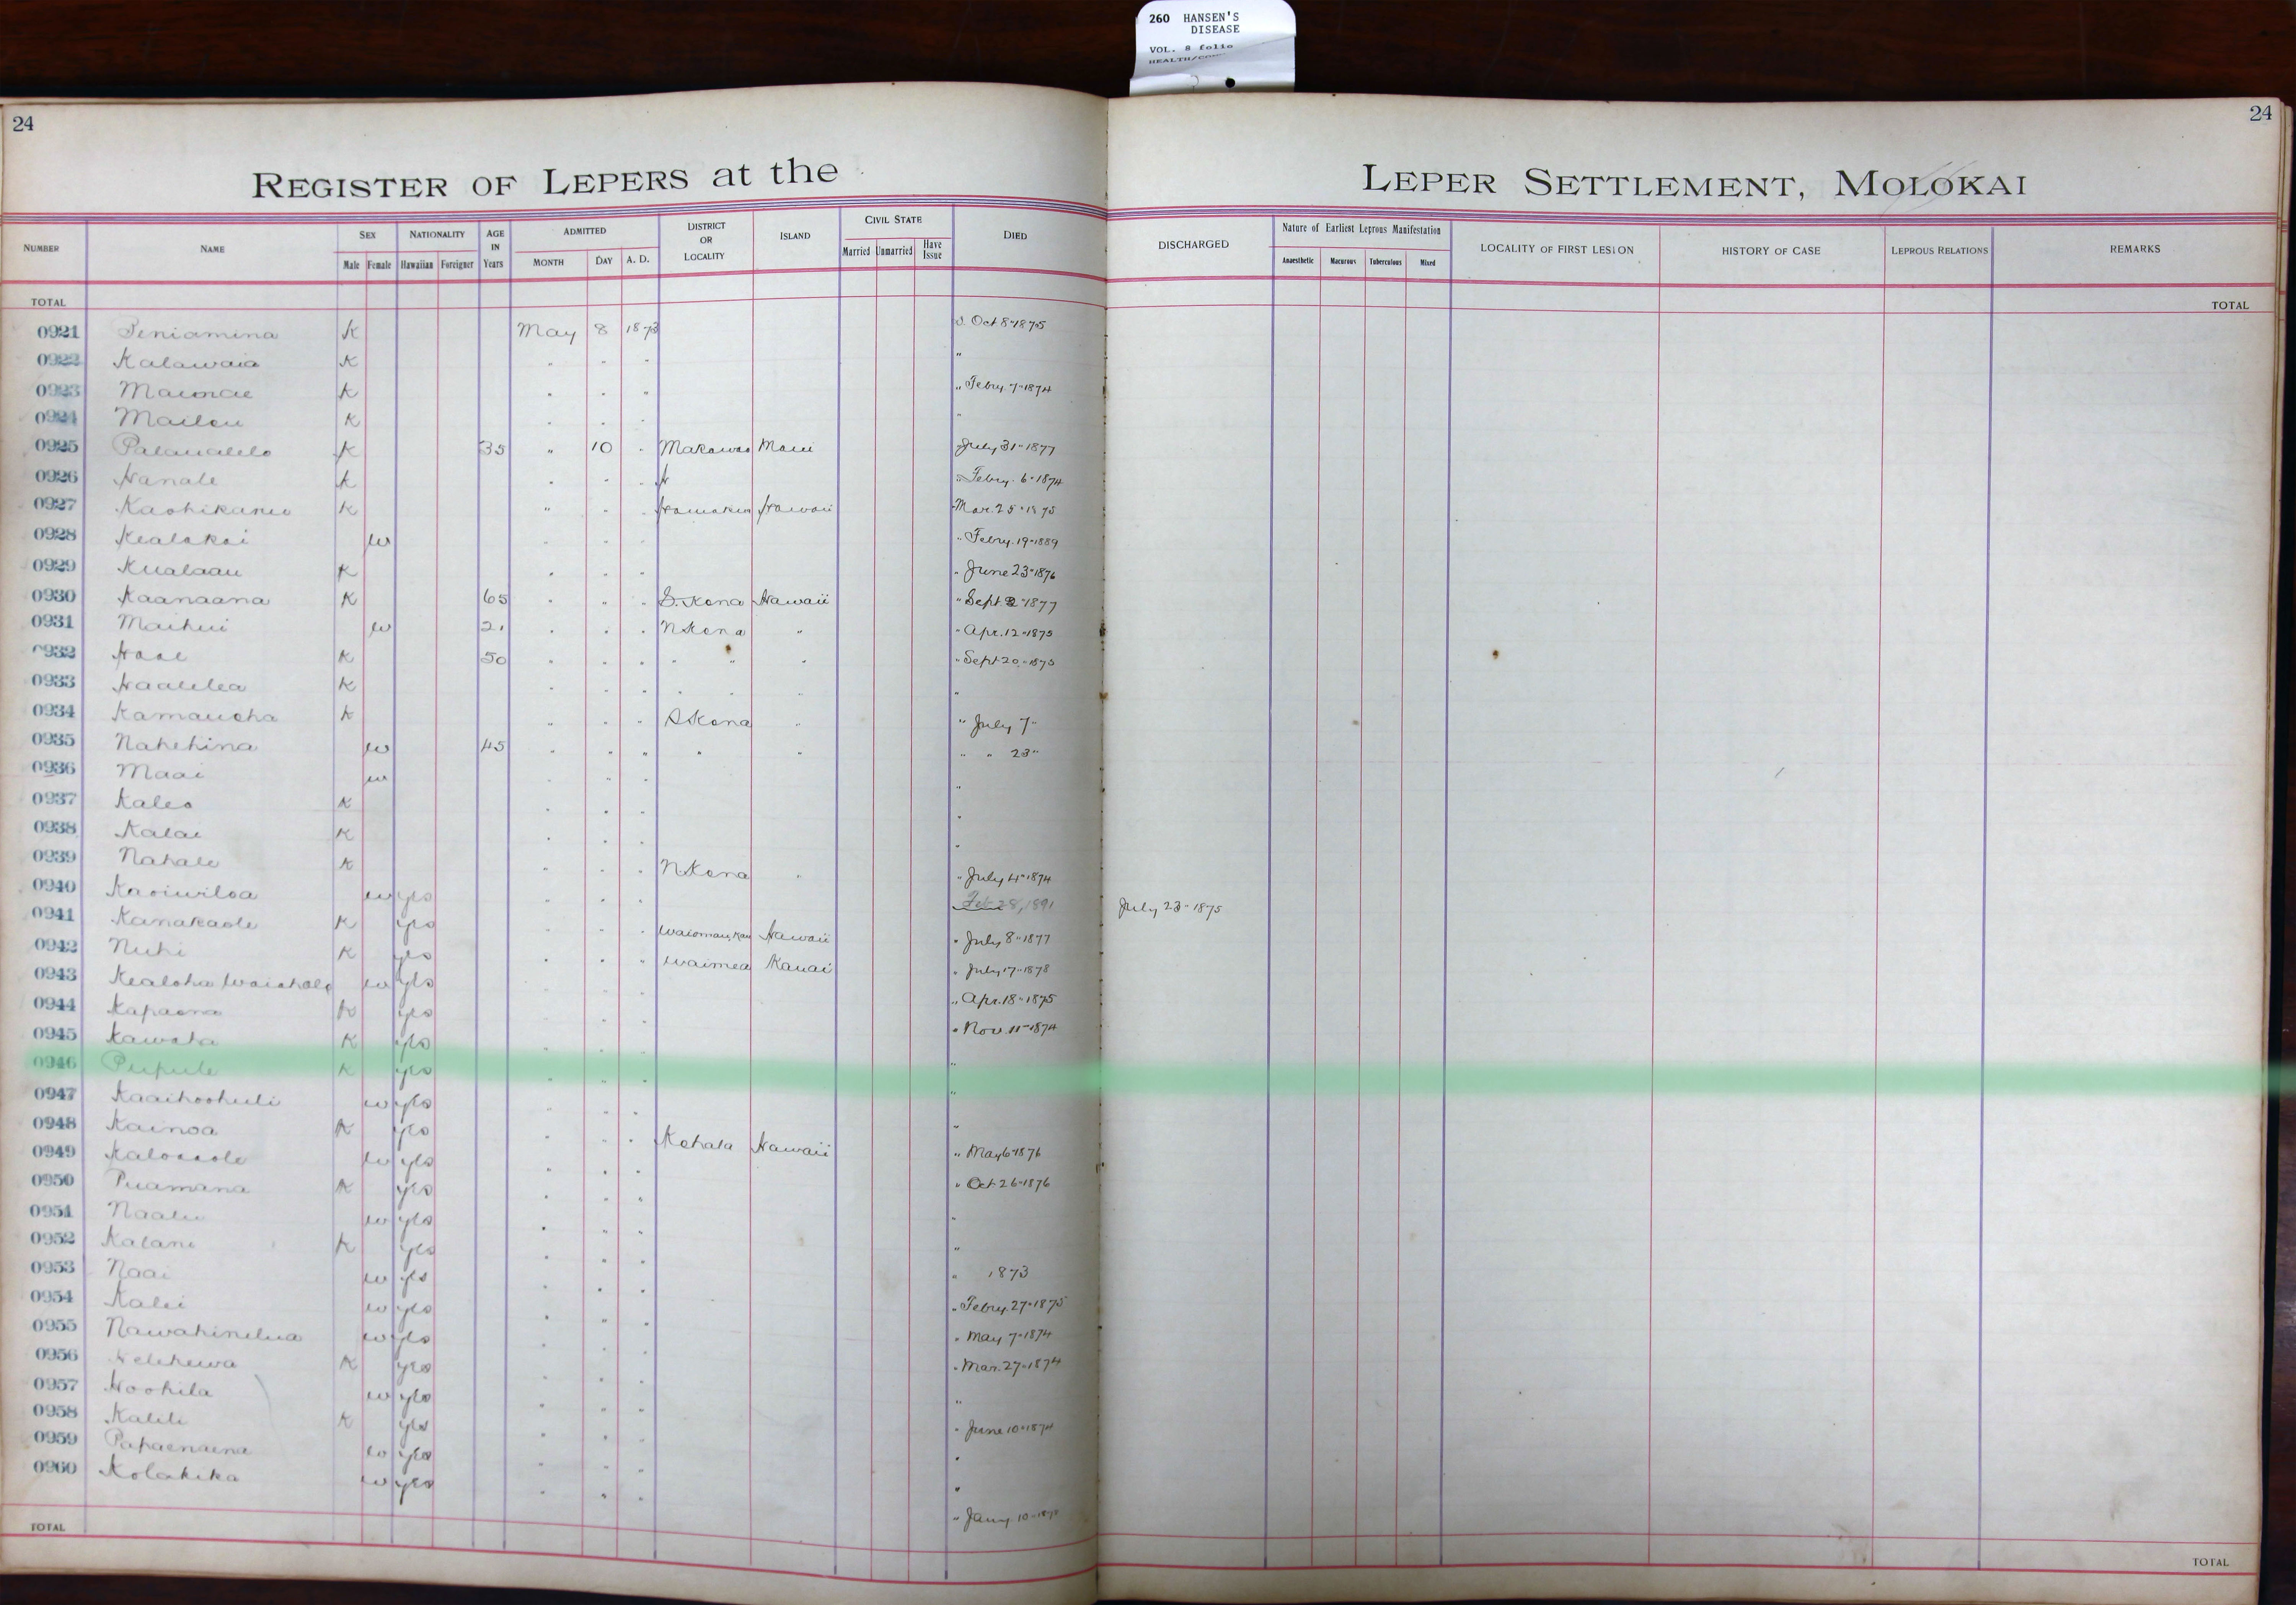 260 HANSEN'S
DISEASE
VOL. 8 folio
24
24
REGISTER OF LEPERS at the
LEPER SETTLEMENT, MOLOKAI
NUMBER NAME SEX Male Female NATIONALITY Hawaiian Foreigner AGE IN Years ADMITTED MONTH DAY A. D. DISTRICT OR LOCALITY ISLAND CIVIL STATE Married Unmarried Have Issue DIED DISCHARGED Nature of Earliest Leprous Manifestation Anaesthetic Macurous Tuberculous Mixed LOCALITY OF FIRST LESION HISTORY OF CASE LEPROUS RELATIONS REMARKS
TOTAL TOTAL
0921 Peniamina K May 8 1873 Oct 8" 1875
0922 Kalawaia K " " " "
0923 K " " " " Febry. 7" 1874
0924 K " " " "
0925 K 35 " 10 " Makawao Maui July 31" 1877
0926 Hanale K " " " " Febry. 6" 1874
0927 K " " " Hawaii Mar. 25" 1875
0928 Kealakai w " " " " Febry. 19" 1889
0929 Kualaau K " " " " June 23" 1876
0930 Kaanaana K 65 " " " S. Kona Hawaii " Sept 2" 1877
0931 Maihui w 21 " " " N Kona " " Apr. 12" 1875
0932 K 50 " " " " " " " Sept 20" 1875
0933 Haalelea K " " " " " " "
0934 Kamauoha K " " " S Kona " " July 7"
0935 Nahehina w 45 " " " " " " " 23"
0936 Maai w " " " "
0937 Kaleo K " " " "
0938 Kalai K " " " "
0939 Nahale K " " " N Kona " " July 4" 1874
0940 Kaoiwiloa w yes " " " Feb 28, 1891 July 23" 1875
0941 Kanakaole K yes " " " Hawaii " July 8" 1877
0942 Nuhi K yes " " " Waimea Kauai " July 17" 1878
0943 Kealoha w yes " " " " Apr. 18" 1875
0944 Kapaona K yes " " " " Nov. 11" 1874
0945 Kawaha K yes " " " "
0946 Pupule K yes " " " "
0947 Kaaihoohuli w yes " " " "
0948 Kainoa K yes " " " Kohala Hawaii " May 6" 1876
0949 w yes " " " " Oct 26" 1876
0950 Puamana K yes " " " "
0951 Naalu w yes " " " "
0952 Kalani K yes " " " " 1873
0953 Naai w yes " " " " Febry. 27" 1875
0954 Kalei w yes " " " " May 7" 1874
0955 Nawahinelua w yes " " " " Mar. 27" 1874
0956 K yes " " " "
0957 Hoohila w yes " " " " June 10" 1874
0958 Kalili K yes " " " "
0959 Papaenaena w yes " " " "
0960 Kolakika w yes " " " " Jany. 10"
TOTAL TOTAL